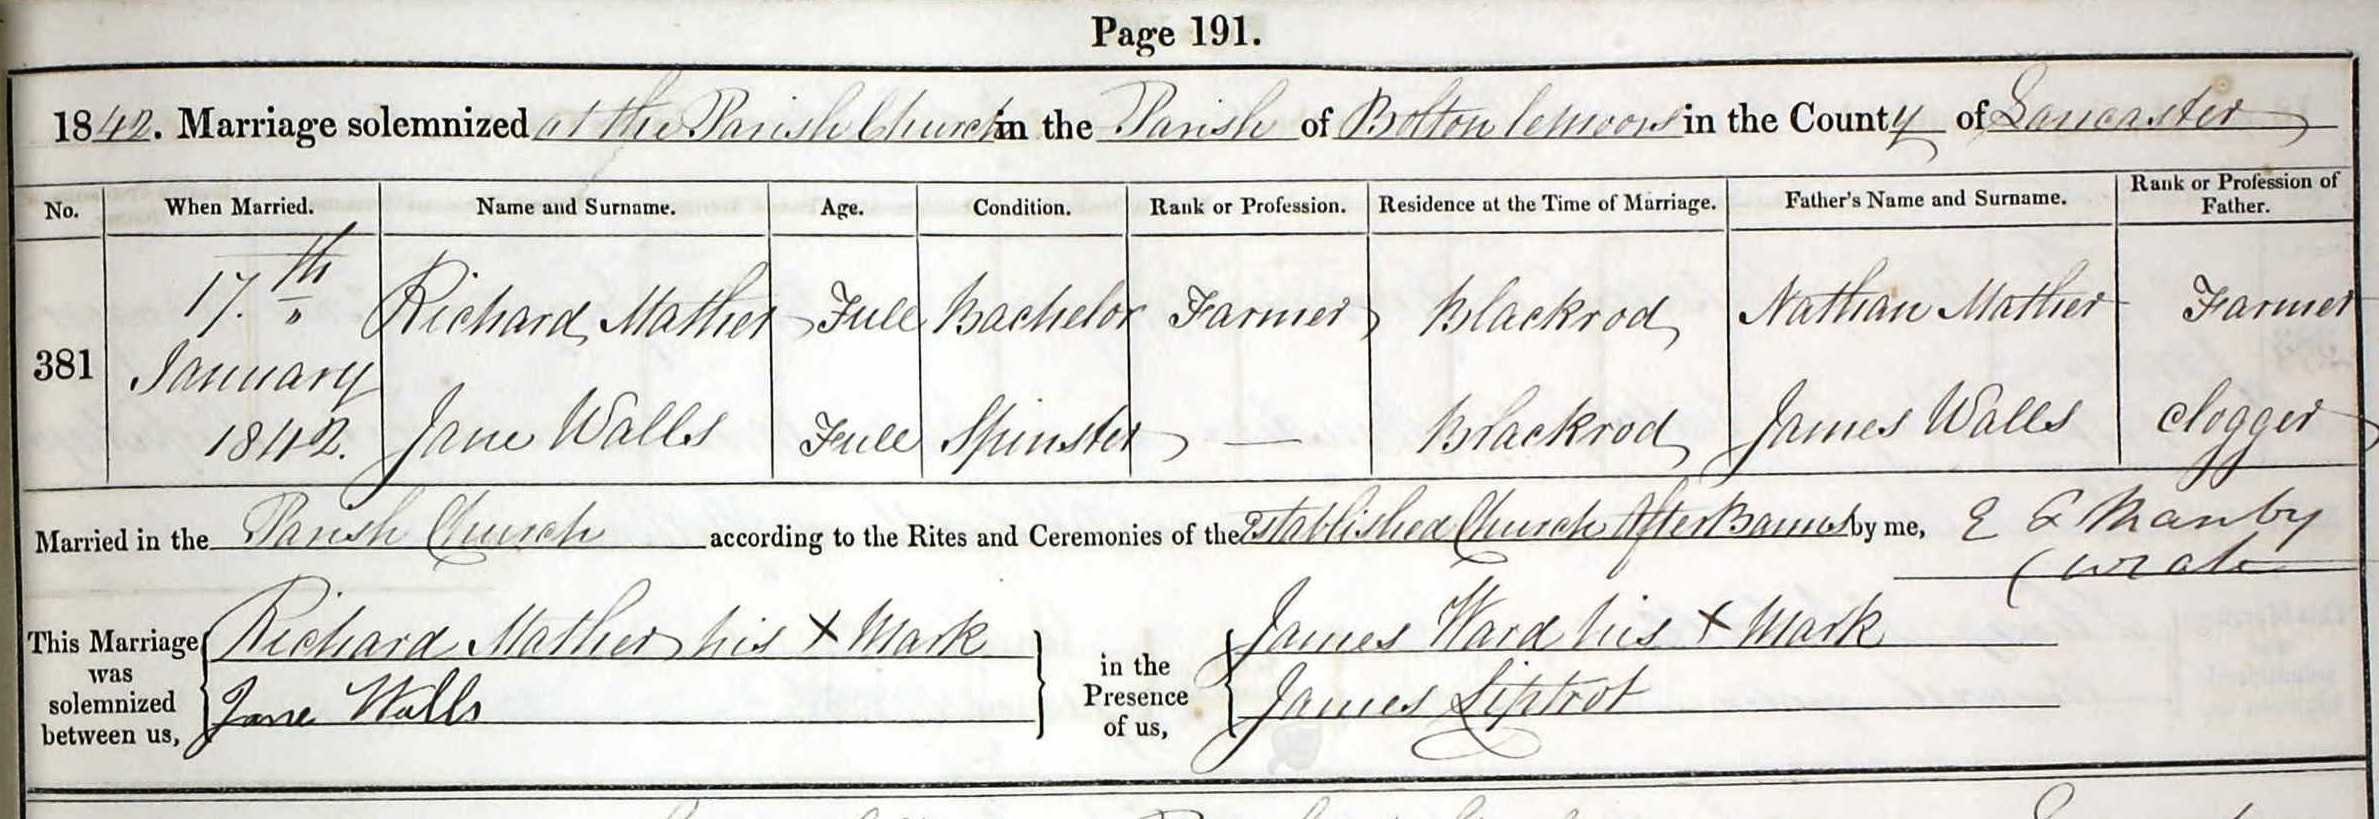 Page 191.
1842. Marriage solemnized at the Parish Church in the Parish of Bolton le moors in the County of Lancaster
No. When Married. Name and Surname. Age. Condition. Rank or Profession. Residence at the Time of Marriage. Father's Name and Surname. Rank or Profession of Father.
381 17.th January 1842. Richard Mather Full Bachelor Farmer Blackrod Nathan Mather Farmer
Jane Walls Full Spinster — Blackrod James Walls clogger
Married in the Parish Church according to the Rites and Ceremonies of the Established Church After Banns by me, E G Manby
Curate
This Marriage was solemnized between us, Richard Mather his X Mark
Jane Walls
in the Presence of us, James Ward his X Mark
James Liptrot